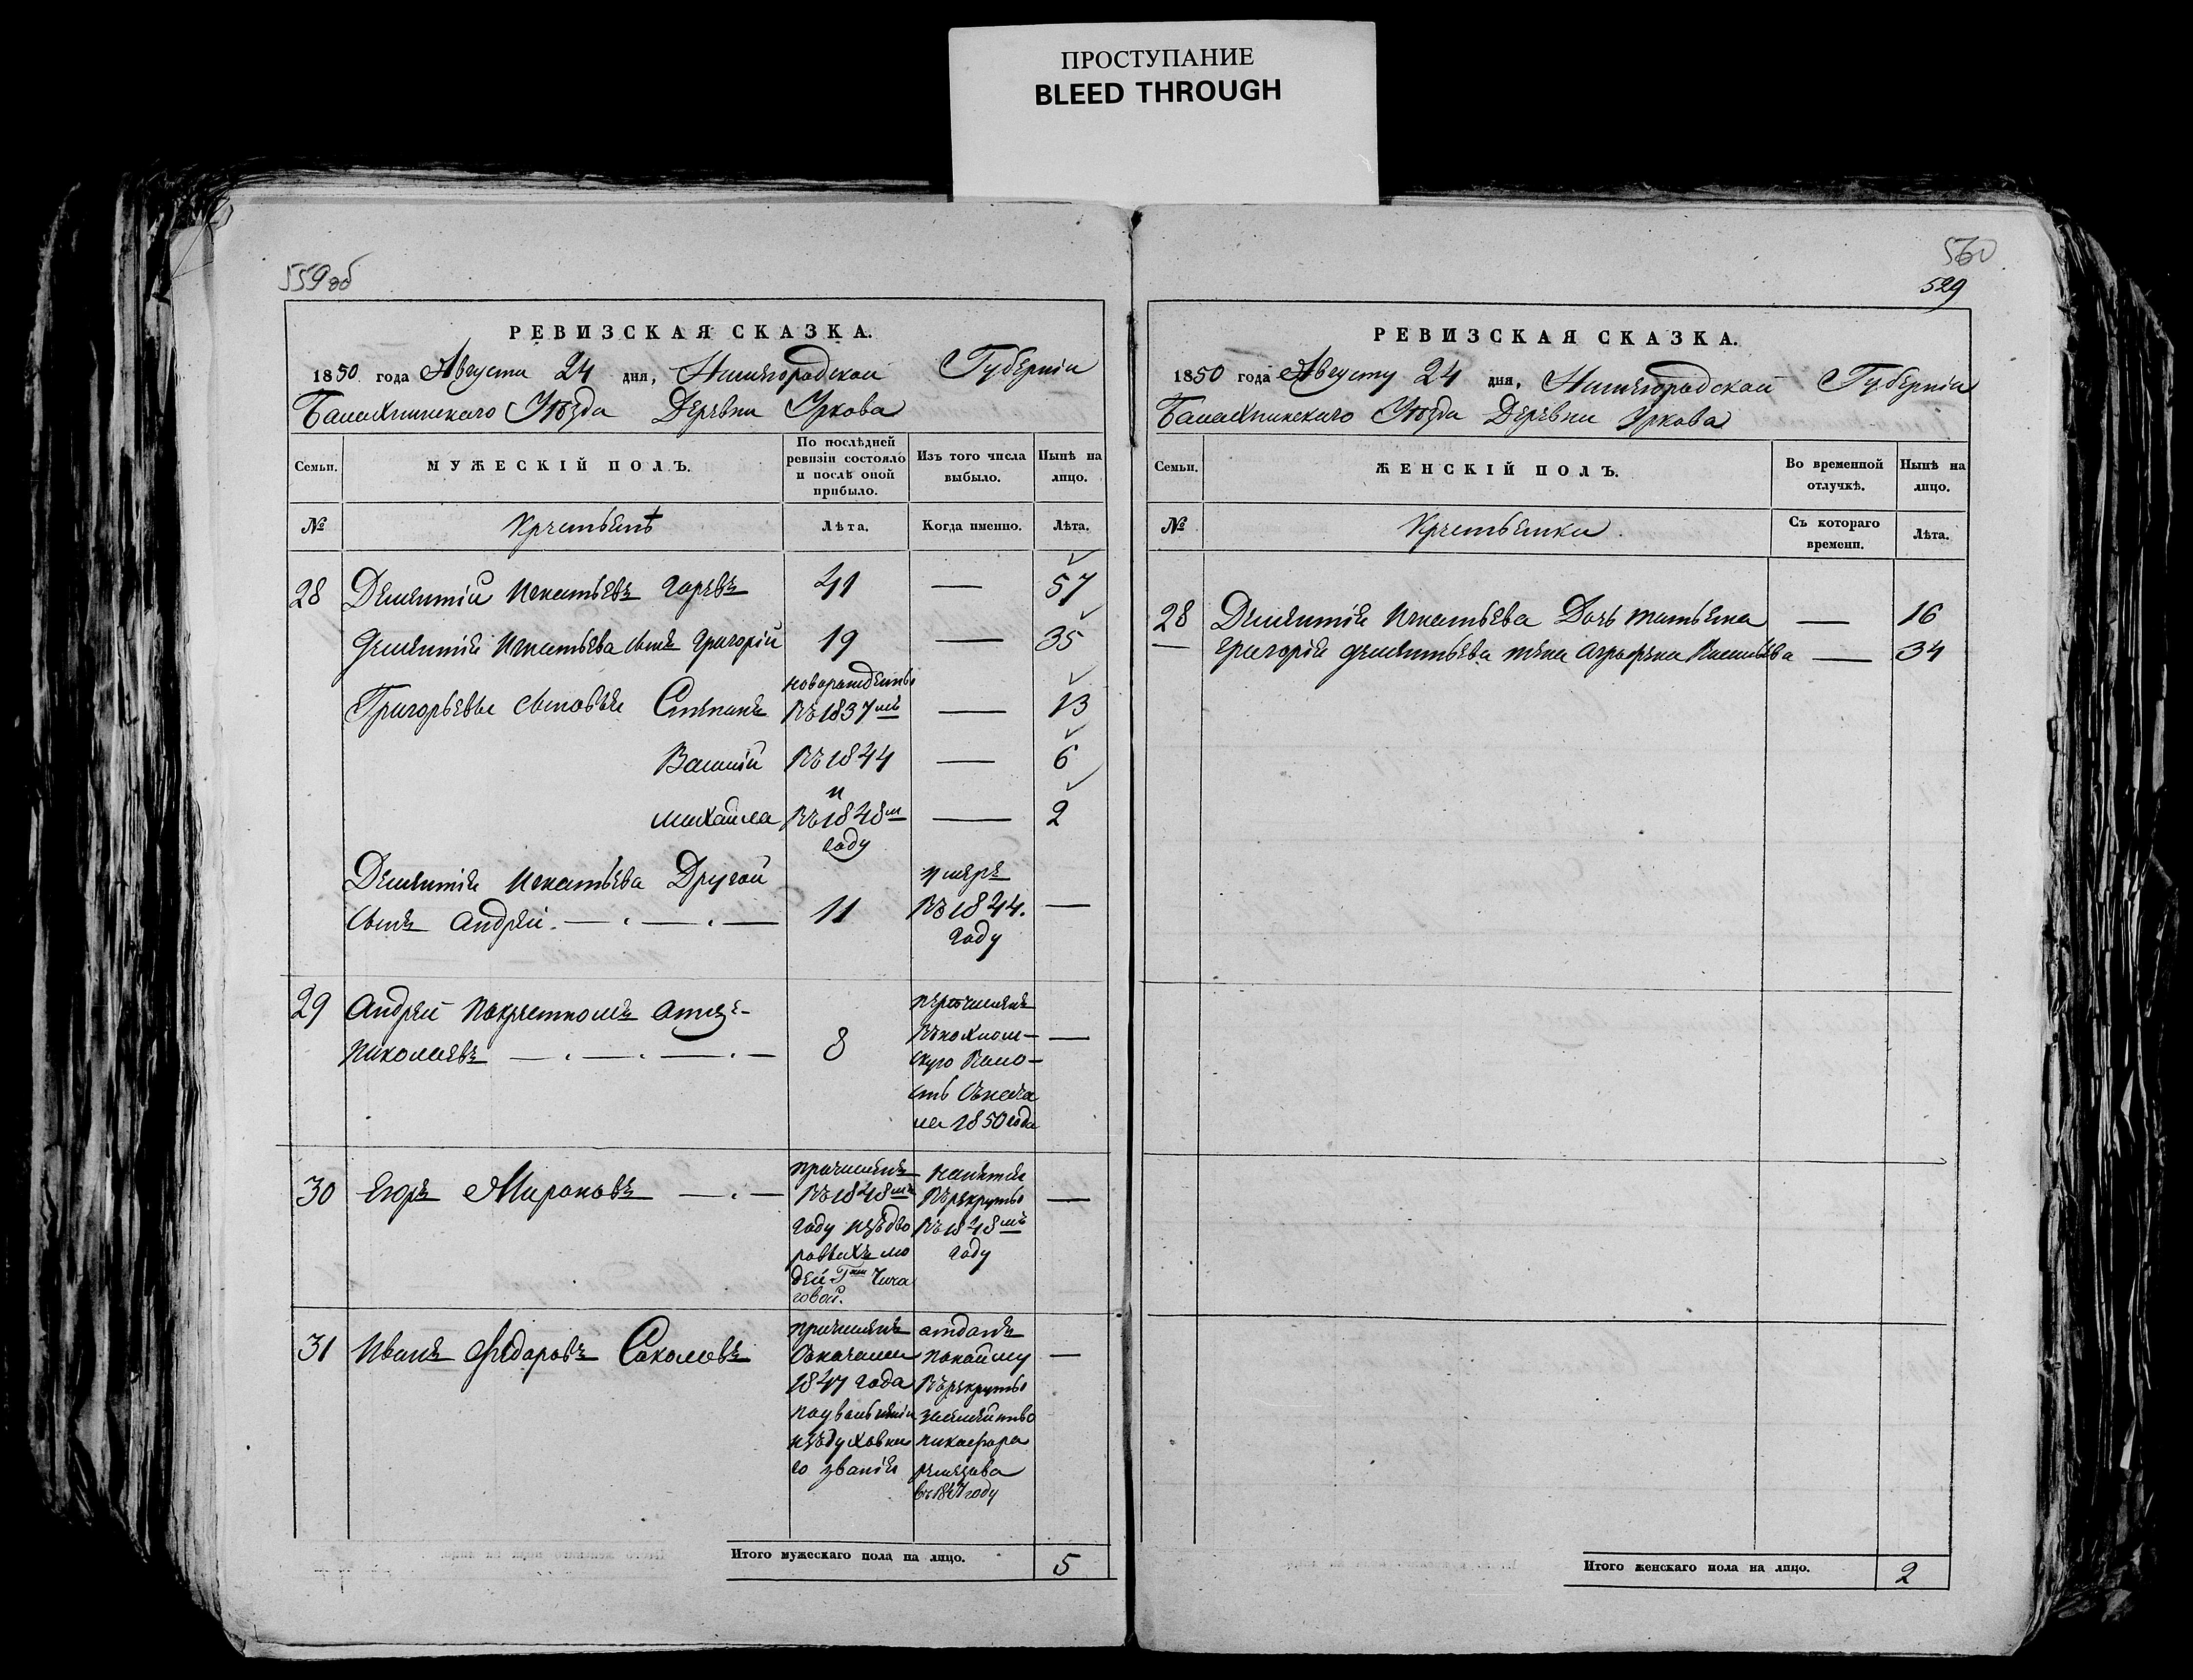 ПРОСТУПАНИЕ
BLEED THROUGH
559об
РЕВИЗСКАЯ СКАЗКА.
1850 года Августа 24 дня, Нижегородской Губерніи
Балахнинскаго Уѣзда Деревни Уркова
Семьи.
МУЖЕСКІЙ ПОЛЪ.
По послѣдней ревизіи состояло и послѣ оной прибыло.
Изъ того числа выбыло.
Нынѣ на лицо.
№
Лѣта.
Когда именно.
Лѣта.
28 Дементій Игнатьевъ 41 — 57
Дементія Игнатьева сынъ Григорій 19 — 35
новорожденъ
Григорьевы сыновья Степанъ Въ 1837мъ — 13
Василій Въ 1844 — 6
и
Михайла Въ 1848м — 2
году
Дементія Игнатьева Другой
умеръ
сынъ Андрей — . — . — 11 Въ 1844. —
году
29 Андрей
Николаевъ — . — . — . — 8 —
перечисленъ
на 1850 года
30 Егоръ Мироновъ — . — —
причисленъ
Въ 1848мъ
году изъ дво
ровыхъ лю
дей
Въ рекруты
Въ 1848мъ
году
31 Иванъ Федоровъ Соколовъ —
причисленъ
съ начала
1847 года
по увольненіи
изъ духовна
го званія
отданъ
по найму
Въ рекруты
за семейство
Никафора
въ 1847 году
Итого мужескаго пола на лицо. 5
560
529
РЕВИЗСКАЯ СКАЗКА.
1850 года Августу 24 дня, Нижегородской Губерніи
Балахнинскаго Уѣзда Деревни Уркова
Семьи.
ЖЕНСКІЙ ПОЛЪ.
Во временной отлучкѣ.
Нынѣ на лицо.
№
Крестьянки
Съ котораго времени.
Лѣта.
28 Дементія Игнатьева Дочь Татьяна — 16
Григорія Дементьева жена Аграфена — 34
Итого женскаго пола на лицо. 2